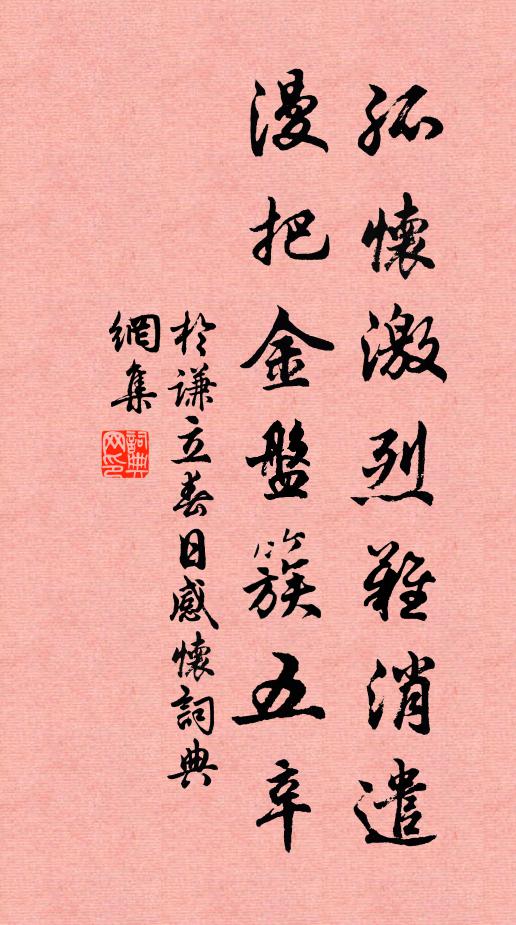 孤懷激烈難消遣
漫把金盤簇五辛
於謙立春日感懷詞典
網集
詞典網印